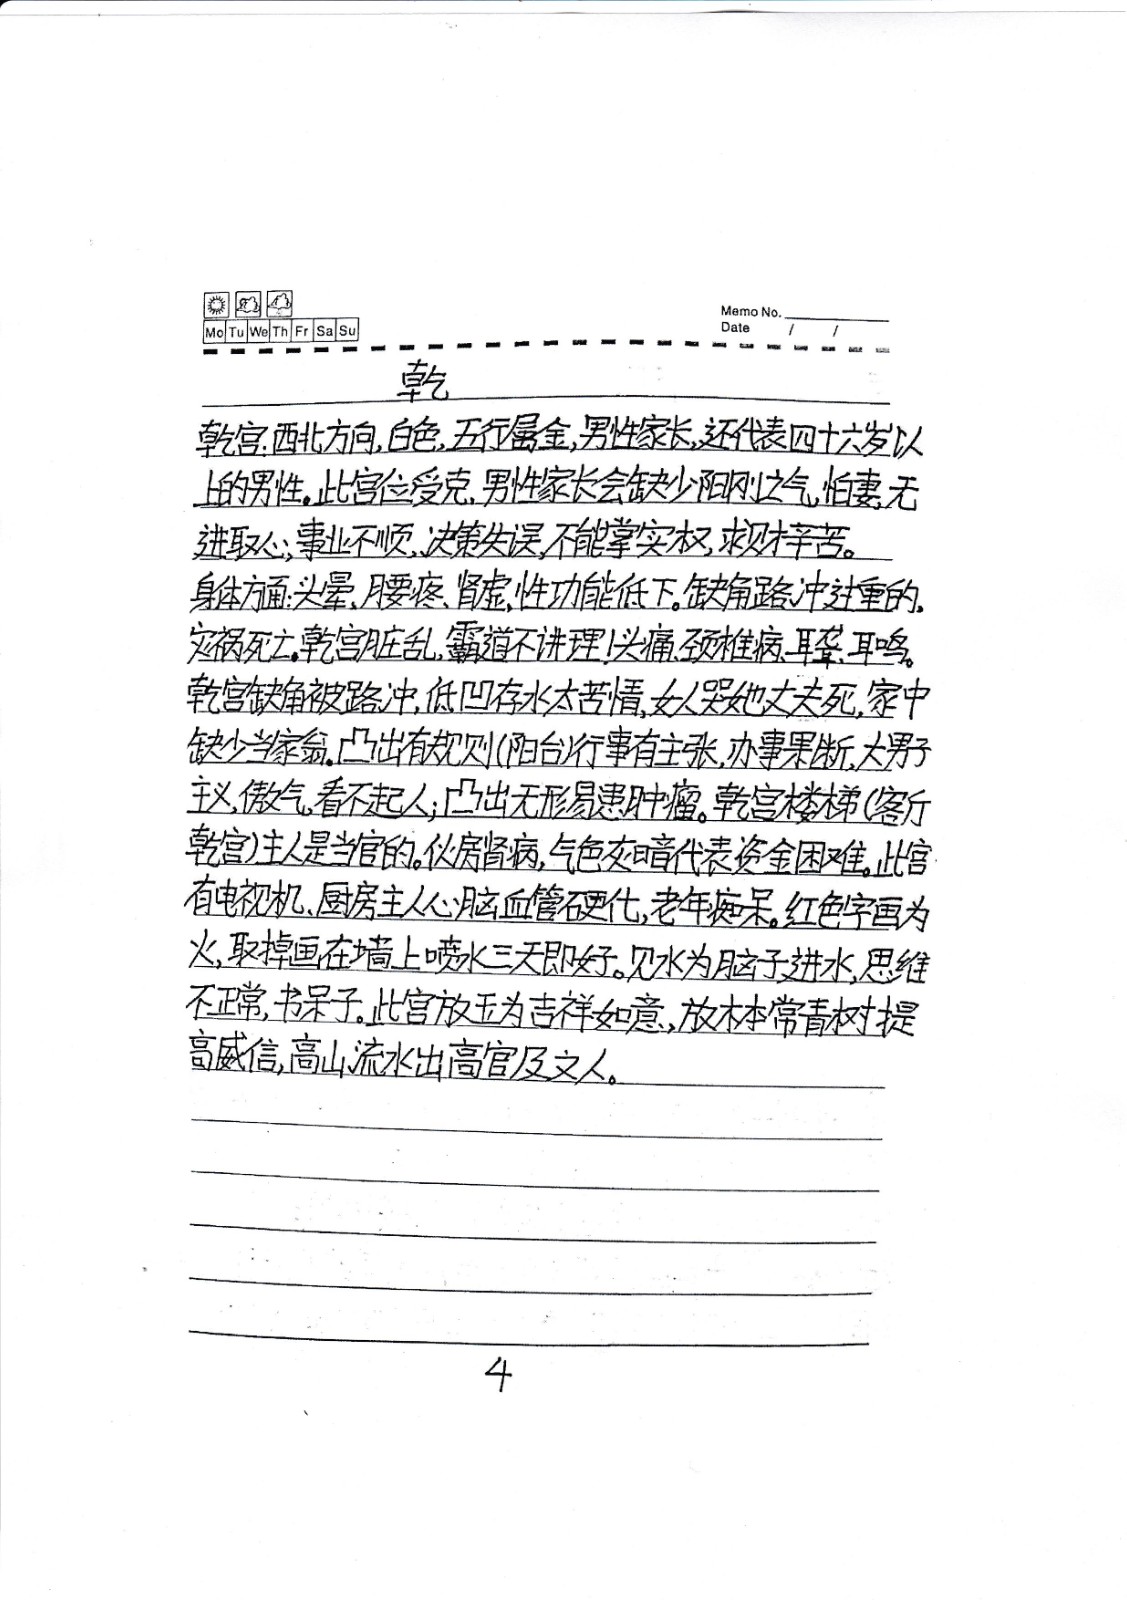 Memo No.
Mo Tu We Th Fr Sa Su
Date / /
乾
乾宫:西北方向,白色,五行属金,男性家长,还代表四十六岁以
上的男性。此宫位受克,男性家长会缺少阳刚之气,怕妻,无
进取心;事业不顺,决策失误,不能掌实权,求财辛苦。
身体方面:头晕、腰疼、肾虚,性功能低下。缺角路冲过重的,
灾祸死亡。乾宫脏乱,霸道不讲理!头痛、颈椎病、耳聋、耳鸣。
乾宫缺角被路冲,低凹存水太苦情,女人哭她丈夫死,家中
缺少当家翁。凸出有规则(阳台)行事有主张,办事果断,大男子
主义,傲气,看不起人;凸出无形易患肿瘤。乾宫楼梯(客厅
乾宫)主人是当官的。伙房肾病,气色灰暗代表资金困难。此宫
有电视机、厨房主人心脑血管硬化,老年痴呆。红色字画为
火,取掉画在墙上喷水三天即好。见水为脑子进水,思维
不正常,书呆子。此宫放玉为吉祥如意,放林本常青树提
高威信,高山流水出高官及文人。
4